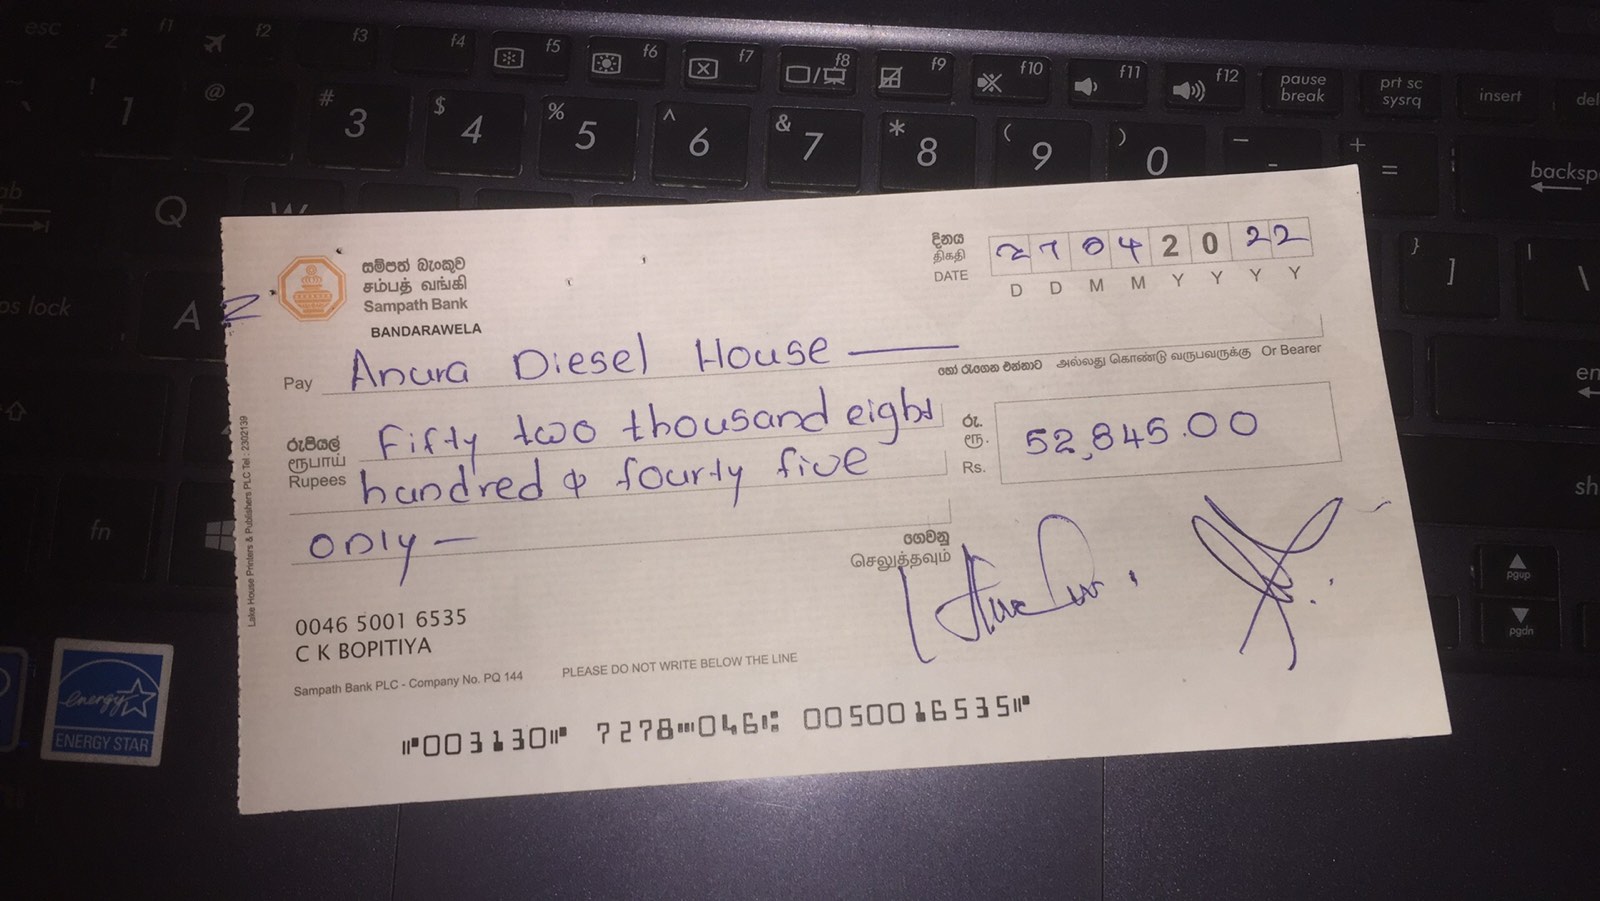 esc
f1
f2
f3
f4
f5
f6
f7
f8
f9
f10
f11
f12
pause
break
prt sc
sysrq
insert
del
! 1
@ 2
# 3
$ 4
% 5
^ 6
& 7
* 8
( 9
) 0
+ =
backsp
Q
A
fn
} ]
en
sh
pgup
pgdn
සම්පත් බැංකුව
சம்பத் வங்கி
Sampath Bank
BANDARAWELA
දිනය
திகதி
DATE
2 7 0 4 2 0 2 2
D D M M Y Y Y Y
Pay Anura Diesel House
හෝ රැගෙන එන්නාට அல்லது கொண்டு வருபவருக்கு Or Bearer
රුපියල්
ரூபாய்
Rupees
Fifty two thousand eight
hundred & fourty five
only —
රු.
ரூ.
Rs.
52,845.00
ගෙවනු
செலுத்தவும்
0046 5001 6535
C K BOPITIYA
Sampath Bank PLC - Company No. PQ 144
PLEASE DO NOT WRITE BELOW THE LINE
⑈003130⑈ 7278⑉046⑆ 0050016535⑈
Lake House Printers & Publishers PLC Tel : 2302139
energy
ENERGY STAR